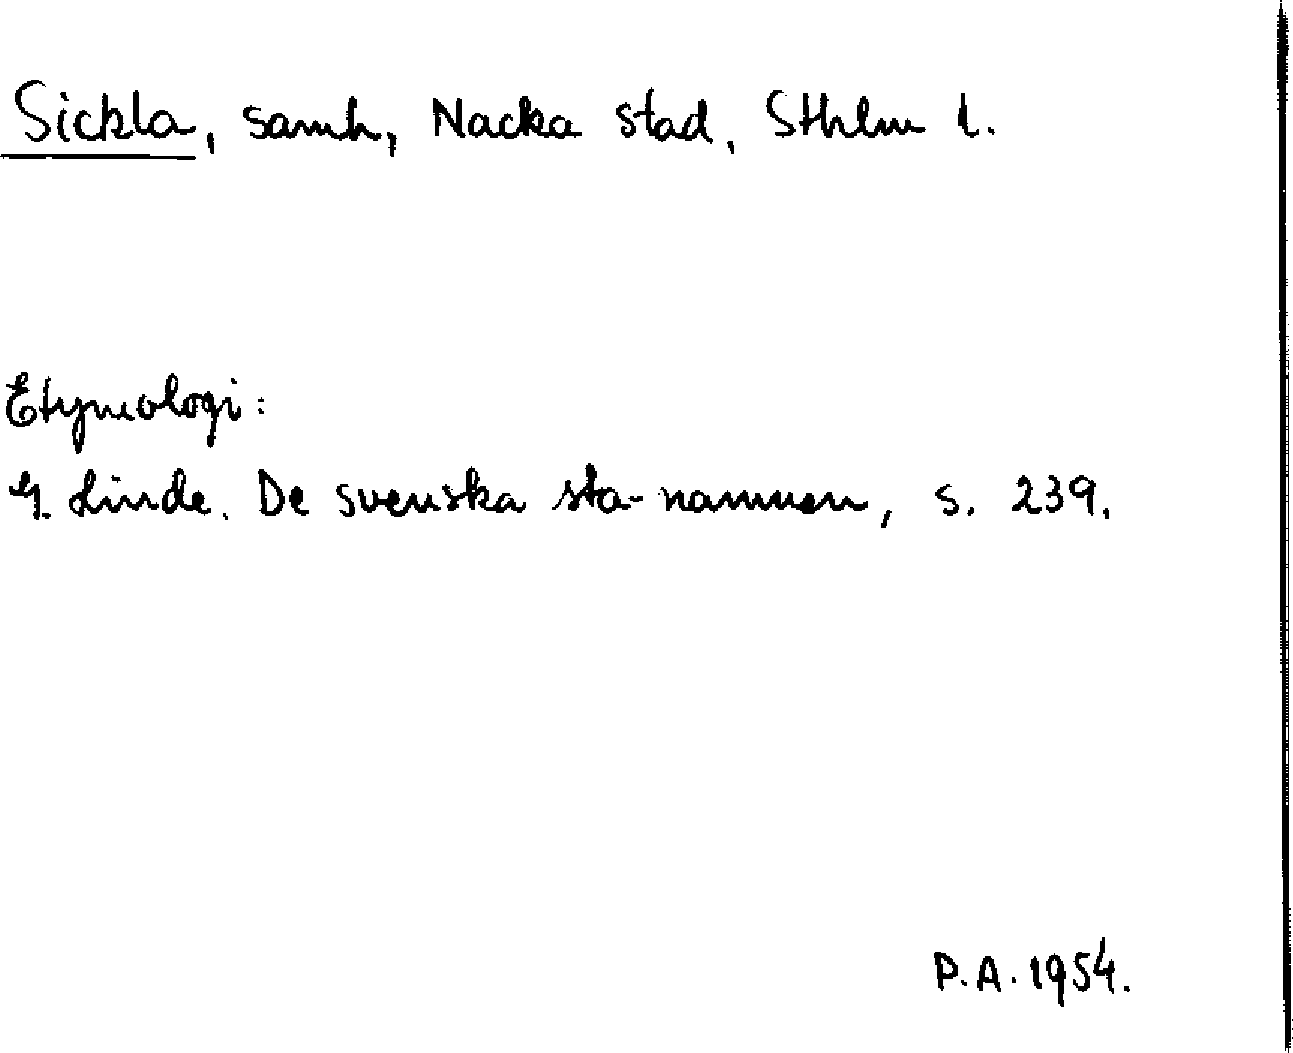 Sickla, samh, Nacka stad, Sthlm l.
Etymologi:
G. Linde. De svenska sta-namnen, s. 239.
P.A. 1954.